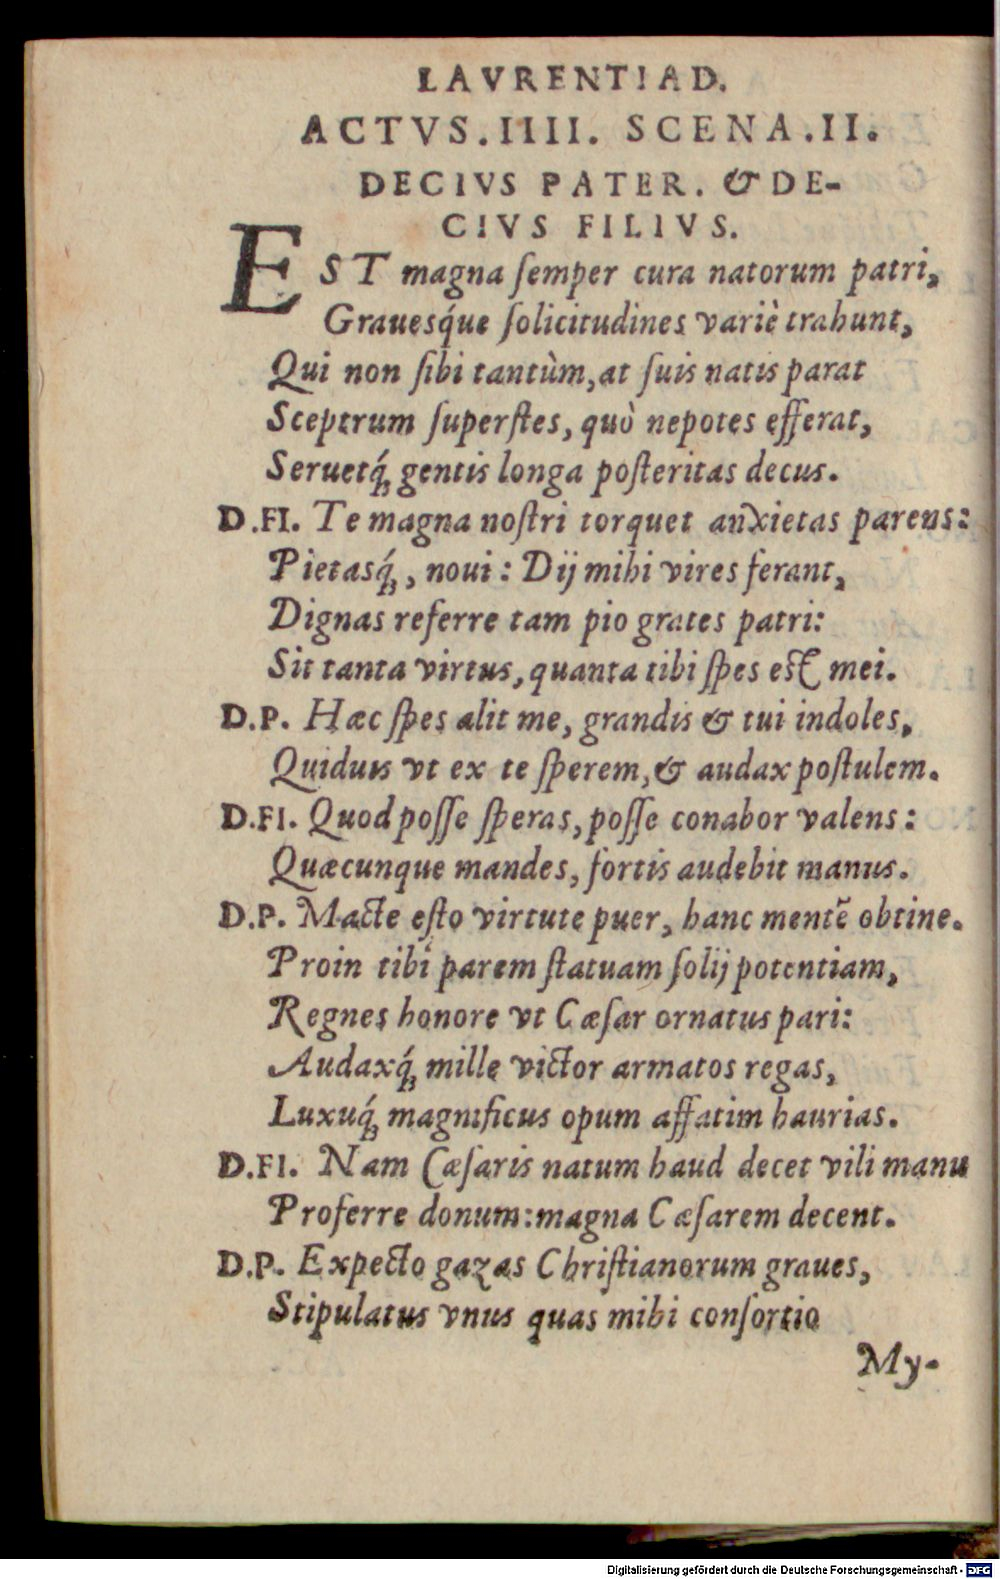 LAVRENTIAD.
ACTVS.IIII. SCENA.II.
DECIVS PATER. & DE-
CIVS FILIVS.
EST magna ſemper cura natorum patri,
Graueſq́ue ſolicitudines variè trahunt,
Qui non ſibi tantùm, at ſuis natis parat
Sceptrum ſuperſtes, quò nepotes efferat,
Seruetq́; gentis longa poſteritas decus.
D.FI. Te magna noſtri torquet anxietas parens:
Pietasq́;, noui: Dij mihi vires ferant,
Dignas referre tam pio grates patri:
Sit tanta virtus, quanta tibi ſpes eſt mei.
D.P. Hæc ſpes alit me, grandis & tui indoles,
Quiduis vt ex te ſperem, & audax poſtulem.
D.FI. Quod poſſe ſperas, poſſe conabor valens:
Quæcunque mandes, fortis audebit manus.
D.P. Macte eſto virtute puer, hanc mentē obtine.
Proin tibi parem ſtatuam ſolij potentiam,
Regnes honore vt Cæſar ornatus pari:
Audaxq́; mille victor armatos regas,
Luxuq́; magnificus opum affatim haurias.
D.FI. Nam Cæſaris natum haud decet vili manu
Proferre donum: magna Cæſarem decent.
D.P. Expecto gazas Chriſtianorum graues,
Stipulatus vnus quas mihi conſortio
My-
Digitalisierung gefördert durch die Deutsche Forschungsgemeinschaft - DFG